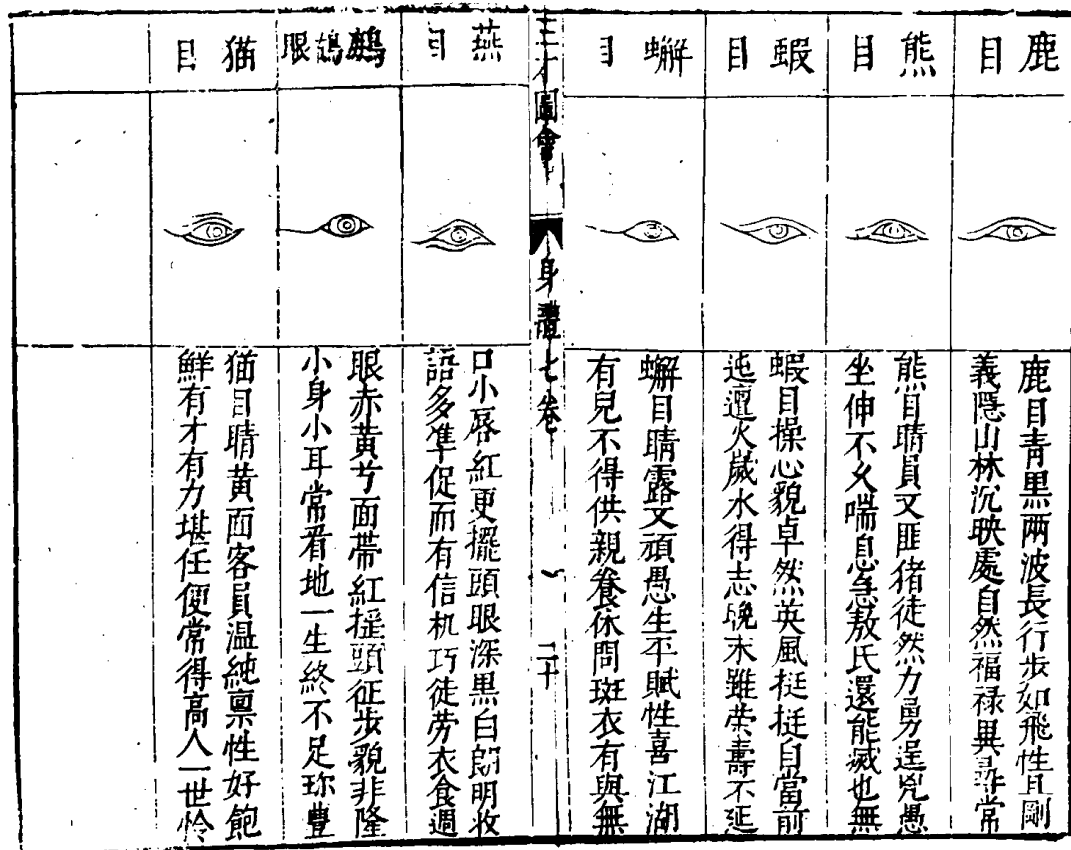 鹿目
鹿目青黑兩波長行步如飛性且剛
義隱山林沉映處自然福禄異尋常
熊目
熊目睛員又匪猪徒然力勇逞兇愚
坐伸不久喘息急敖氏還能滅也無
蝦目
蝦目操心貌卓然英風挺挺自當前
迍邅火嵗水得志晚末雖荣壽不延
蠏目
蠏目睛露又頑愚生平賦性喜江湖
有兒不得供親養休問斑衣有與無
三才圖會
身體七卷
二十
燕目
口小唇紅更擺頭眼深黑白朗明收
語多準促而有信机巧徒劳衣食週
鷓鴣眼
眼赤黄兮面帶紅摇頭征步貌非隆
小身小耳常看地一生終不足珎豐
猫目
猫目睛黄面容員温純禀性好飽
鮮有才有力堪任使常得高人一世怜